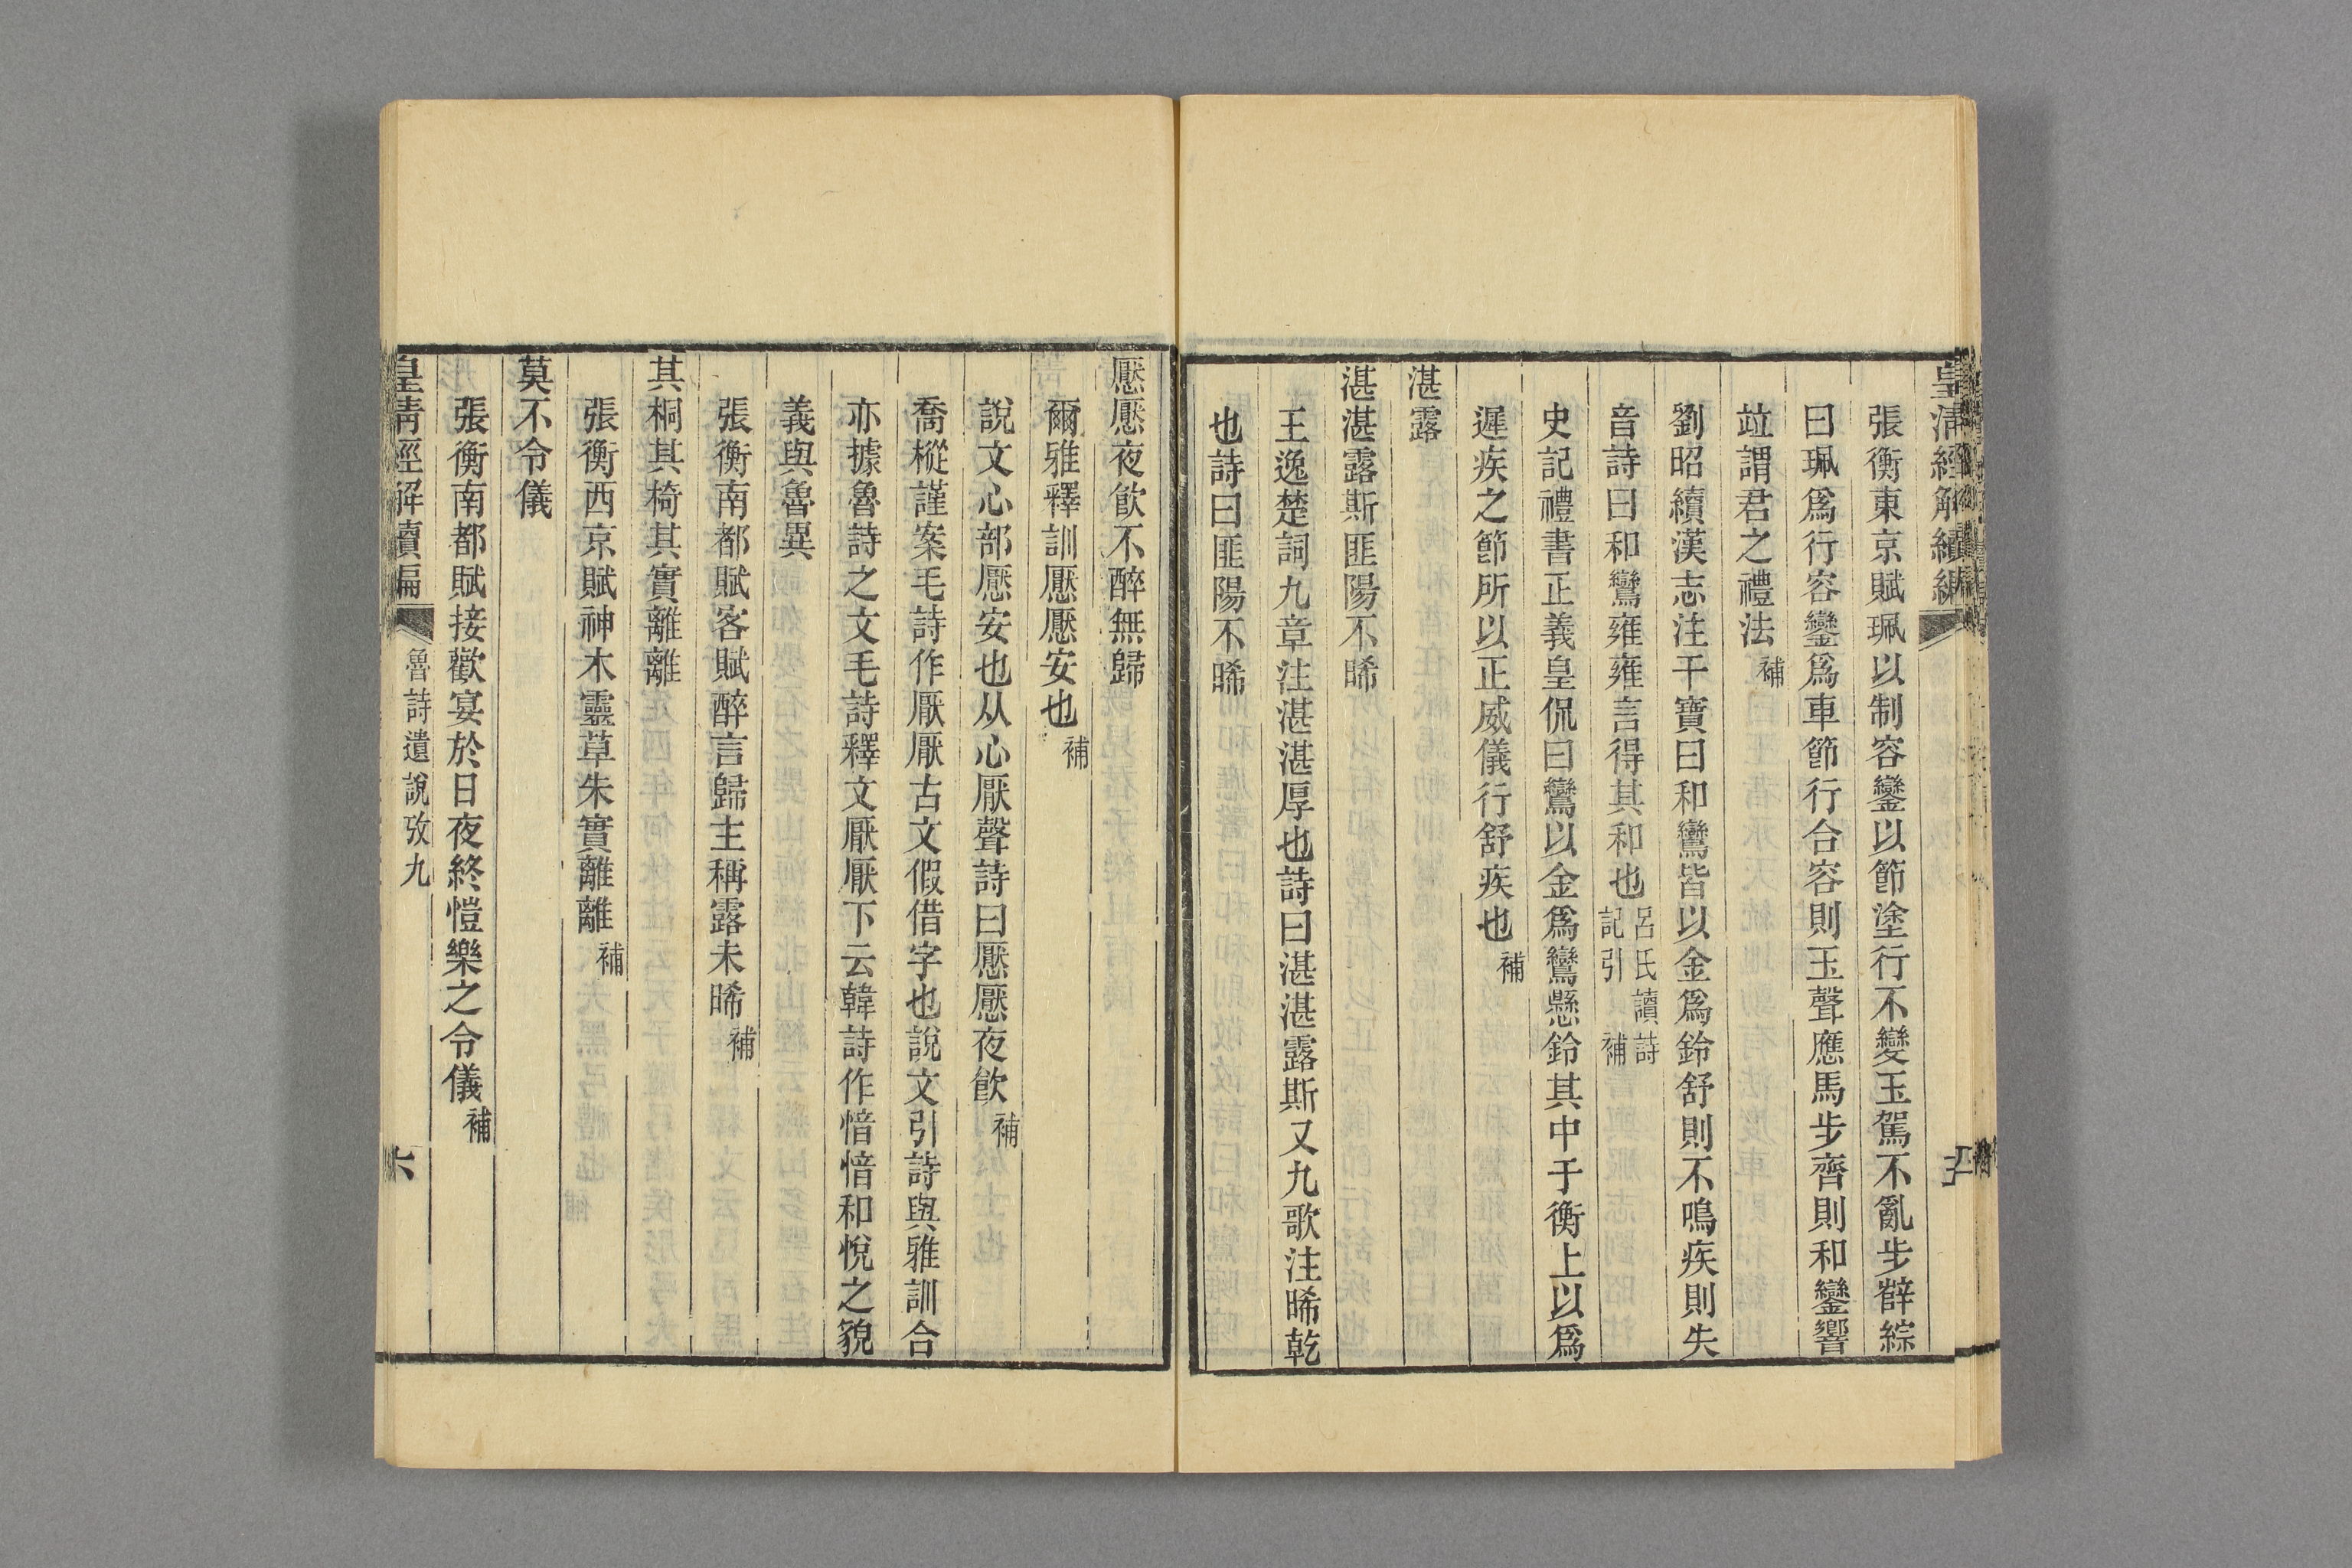 皇清經解續編
張衡東京賦珮以制容鑾以節塗行不變玉駕不亂步薛綜
曰珮爲行容鑾爲車節行合容則玉聲應馬步齊則和鑾響
竝謂君之禮法補
劉昭續漢志注干寶曰和鸞皆以金爲鈴舒則不鳴疾則失
音詩曰和鸞雍雍言得其和也呂氏讀詩記引補
史記禮書正義皇侃曰鸞以金爲鸞懸鈴其中于衡上以爲
遲疾之節所以正威儀行舒疾也補
湛露
湛湛露斯匪陽不晞
王逸楚詞九章注湛湛厚也詩曰湛湛露斯又九歌注晞乾
也詩曰匪陽不晞
懕懕夜飮不醉無歸
爾雅釋訓懕懕安也補
說文心部懕安也从心厭聲詩曰懕懕夜飮補
喬樅謹案毛詩作厭厭古文假借字也說文引詩與雅訓合
亦據魯詩之文毛詩釋文厭厭下云韓詩作愔愔和悅之貌
義與魯異
張衡南都賦客賦醉言歸主稱露未晞補
其桐其椅其實離離
張衡西京賦神木靈草朱實離離補
莫不令儀
張衡南都賦接歡宴於日夜終愷樂之令儀補
皇清經解續編 魯詩遺說攷九 六